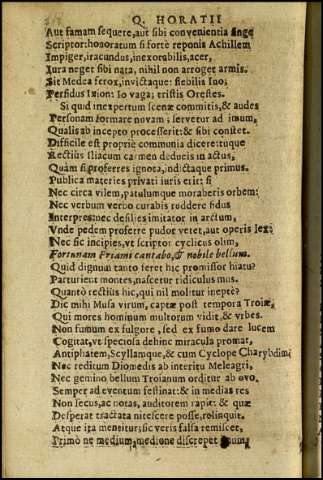 Q. HORATII
Aut famam sequere, aut sibi convenientia finge
Scriptor: honoratum si fortè reponis Achillem
Impiger, iracundus, inexorabilis, acer,
Iura neget sibi nata, nihil non arroget armis.
Sit Medea ferox, invictaque: flebilis Ino;
Perfidus Ixion: Io vaga; tristis Orestes.
Si quid inexpertum scenæ commitis, & audes
Personam formare novam; servetur ad imum,
Qualis ab incepto processerit: & sibi constet.
Difficile est propriè communia dicere: tuque
Rectiùs Iliacum carmen deducis in actus,
Quàm si proferres ignota, indictaque primus.
Publica materies privati iuris erit: si
Nec circa vilem, patulumque moraberis orbem:
Nec verbum verbo curabis reddere fidus
Interpres: nec desilies imitator in arctum,
Vnde pedem proferre pudor vetet, aut operis lex:
Nec sic incipies, vt scriptor cyclicus olim,
Fortunam Priami cantabo, & nobile bellum.
Quid dignum tanto feret hic promissor hiatu?
Parturient montes, nascetur ridiculus mus.
Quantò rectiùs hic, qui nil molitur ineptè?
Dic mihi Musa virum, captæ post tempora Troiæ,
Qui mores hominum multorum vidit, & vrbes.
Non fumum ex fulgore, sed ex fumo dare lucem
Cogitat, vt speciosa dehinc miracula promat,
Antiphatem, Scyllamque, & cum Cyclope Charybdim;
Nec reditum Diomedis ab interitu Meleagri,
Nec gemino bellum Troianum orditur ab ovo.
Semper ad eventum festinat: & in medias res
Non secus, ac notas, auditorem rapit: & quæ
Desperat tractata nitescere posse, relinquit.
Atque ita mentitur; sic veris falsa remiscet,
Primò ne medium, medio ne discrepet imum.